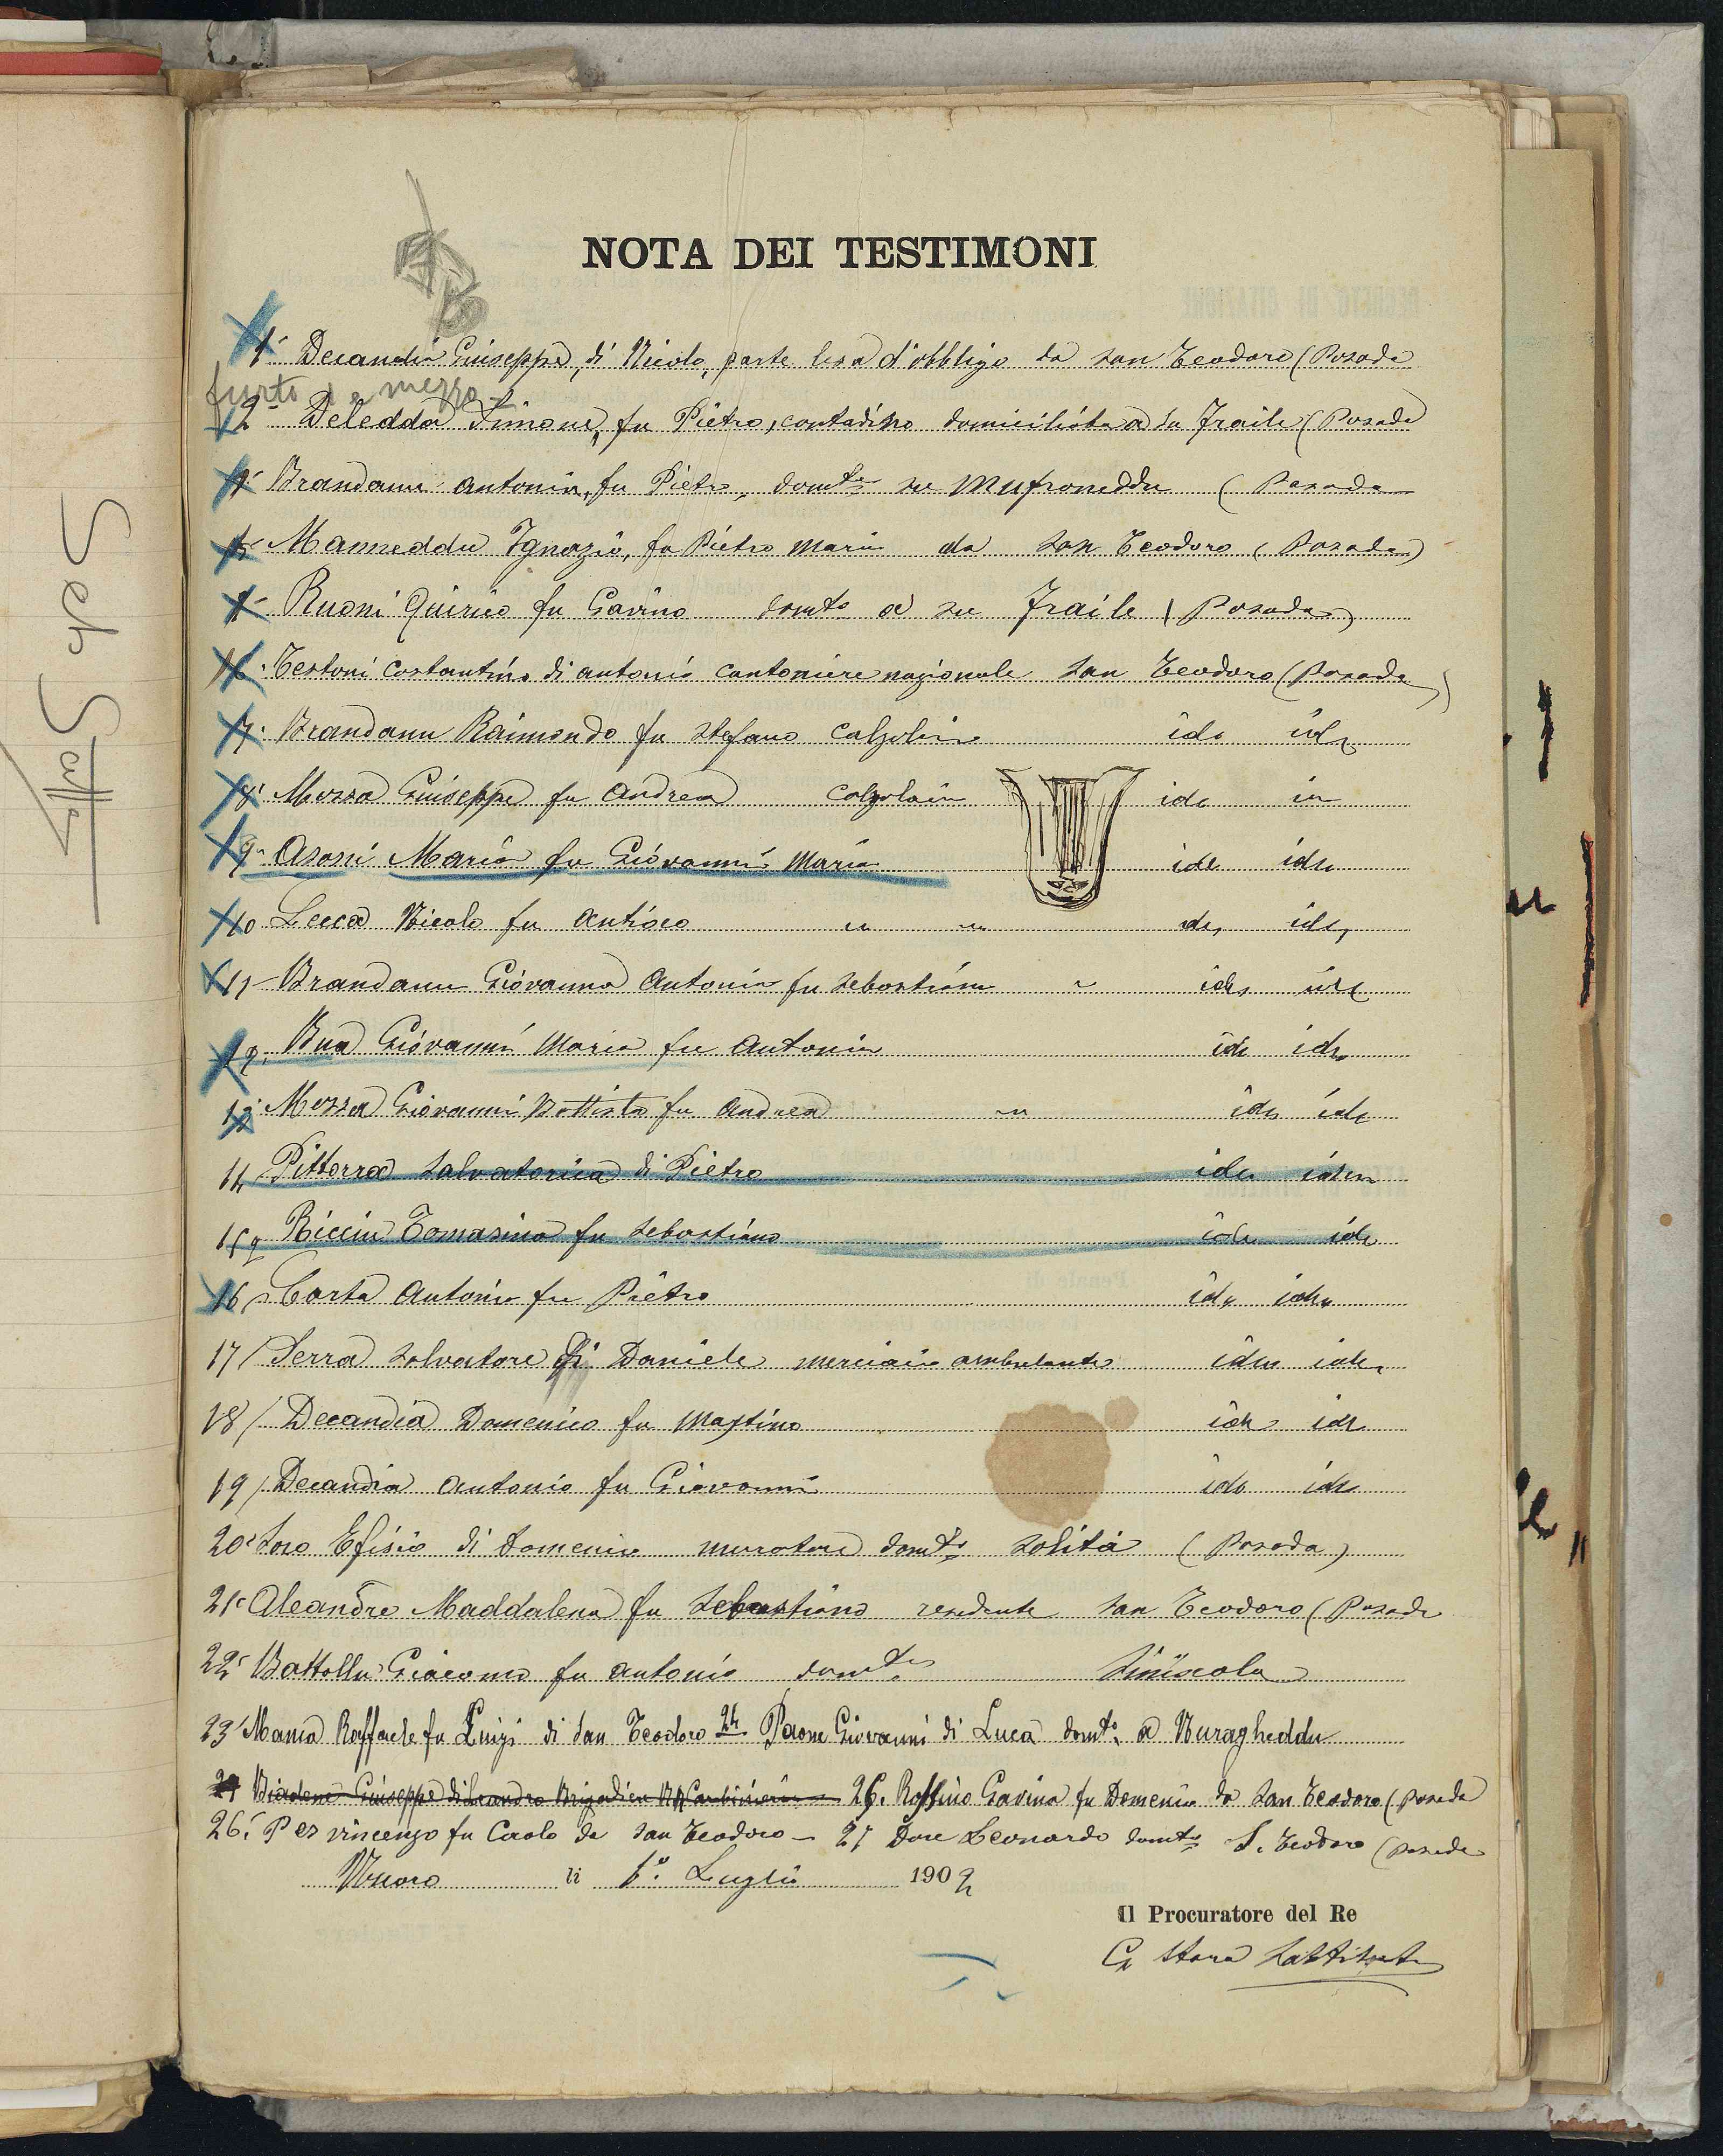 NOTA DEI TESTIMONI
1° Decandia Giuseppe, di Nicolo, parte lesa d'obbligo da San Teodoro (Posada
furto di mezzo
2° Deledda Simone, fu Pietro, contadino domiciliato a Su Fraile (Posada
Brandanu Antonio, fu Pietro, domto su Mufroneddu (Posada
Manneddu Ignazio, fu Pietro Maria da San Teodoro (Posada)
Ruoni Quirico fu Gavino domto a su Fraile (Posada)
6. Testoni Costantino di Antonio cantoniere nazionale San Teodoro (Posada)
7. Brandanu Raimondo fu Stefano calzolaio ide ide
8° Mossa Giuseppe fu Andrea calzolaio ide
9° Asoni Maria fu Giovanni Maria ide ide
10 Lecca Nicolo fu Antioco ide, ide,
11 Brandanu Giovanna Antonia fu Sebastiano ide ide
12. Bua Giovanni Maria fu Antonio ide ide
13° Mossa Giovanni Battista fu Andrea ide ide
14 Pittorra Salvatorica di Pietro ide idem
15 Ricciu Tomasina fu Sebastiano ide ide
16 Carta Antonio fu Pietro ide ide
17/ Serra Salvatore di Daniele merciaio ambulante ide ide
18/ Decandia Domenico fu Martino ide ide
19/ Decandia Antonio fu Giovanni ide ide
20° Loro Efisio di Domenico muratore domto Solità (Posada)
21° Aleandre Maddalena fu Sebastiano residente San Teodoro (Posada
22° Battollu Giacomo fu Antonio domto Siniscola
23° Mania Raffaele fu Luigi di San Teodoro 24 Paone Giovanni di Luca domto a Nuragheddu
Giuseppe di Leandro Brigadiere RR Carabinieri 25. Ruffino Gavina fu Domenico da San Teodoro (Posada
26° Pes Vincenzo fu Carlo da San Teodoro - 27 Dore Leonardo domto S. Teodoro (Posada
Nuoro li 1° Luglio 1902
Il Procuratore del Re
Seb Satta